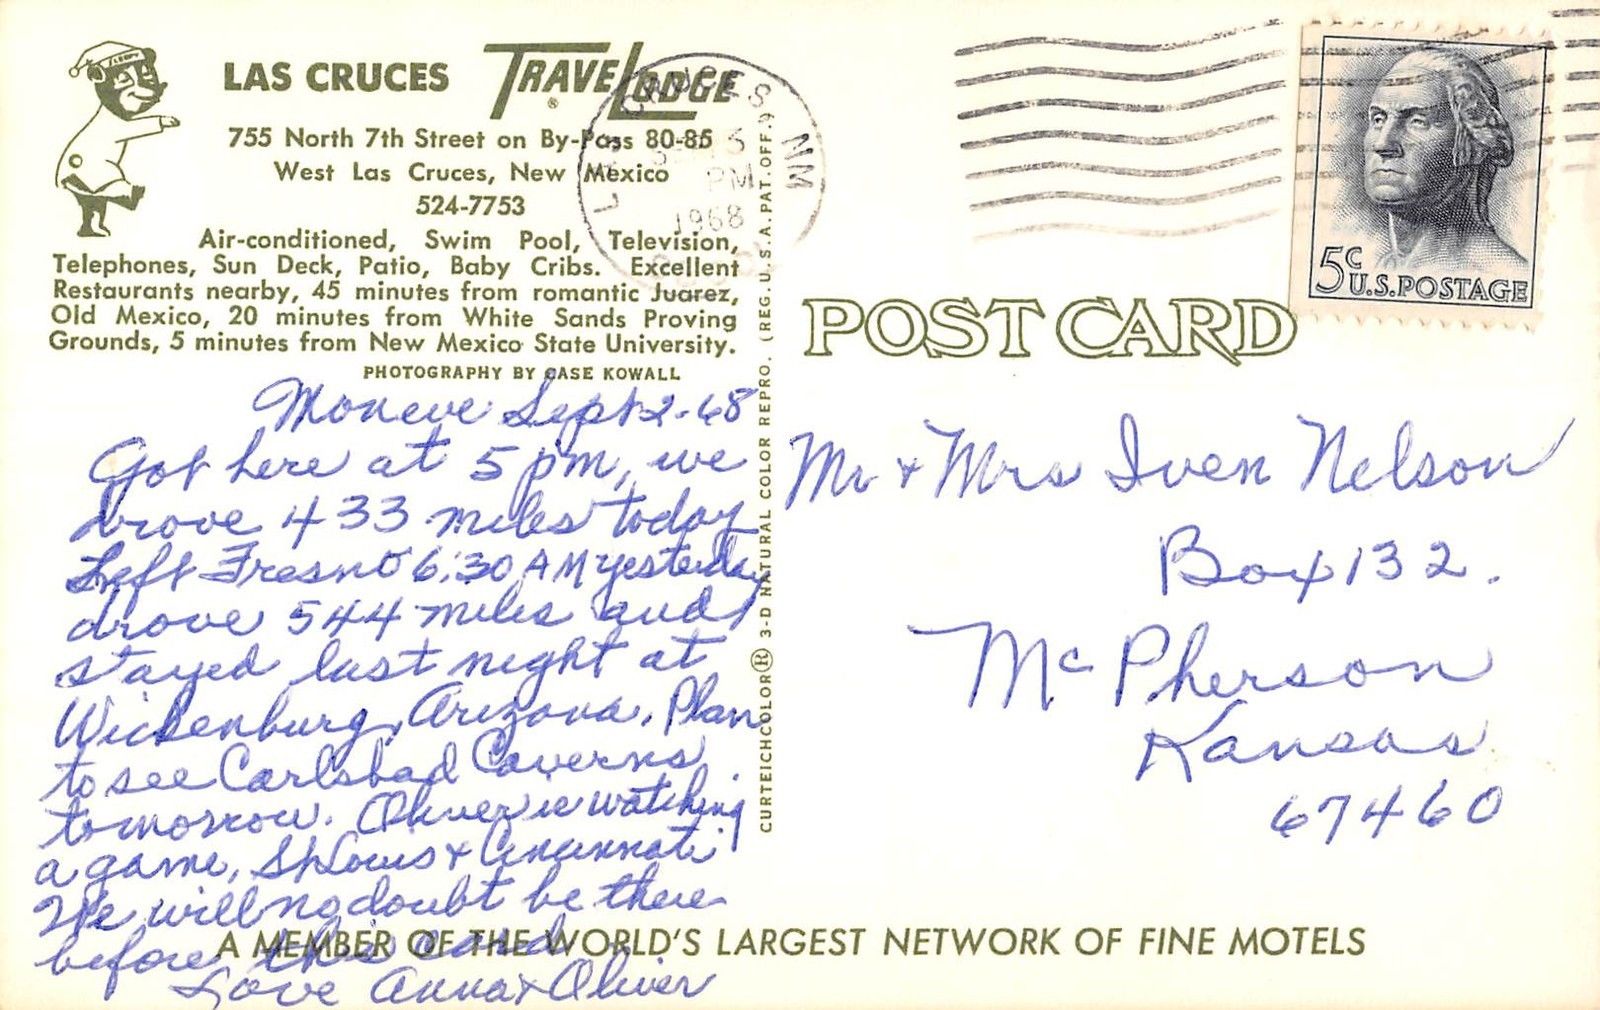 SLEEPY
LAS CRUCES TRAVELODGE ®
755 North 7th Street on By-Pass 80-85
West Las Cruces, New Mexico
524-7753
Air-conditioned, Swim Pool, Television,
Telephones, Sun Deck, Patio, Baby Cribs. Excellent
Restaurants nearby, 45 minutes from romantic Juarez,
Old Mexico, 20 minutes from White Sands Proving
Grounds, 5 minutes from New Mexico State University.
PHOTOGRAPHY BY CASE KOWALL
Mon eve Sept 2-68
Got here at 5 pm, we
drove 433 miles today
Left Fresno 6:30 AM yesterday
drove 544 miles and
stayed last night at
Wickenburg, Arizona. Plan
to see Carlsbad Caverns
tomorrow. Oliver is watching
a game, St Louis & Cincinnati
We will no doubt be there
before this card
Love Anna & Oliver
CURTEICHCOLOR® 3-D NATURAL COLOR REPRO. (REG. U.S.A. PAT. OFF.)
LAS CRUCES NM
SEP 3
PM
1968
5c U.S. POSTAGE
POST CARD
Mr & Mrs Iven Nelson
Box 132.
McPherson
Kansas
67460
A MEMBER OF THE WORLD'S LARGEST NETWORK OF FINE MOTELS